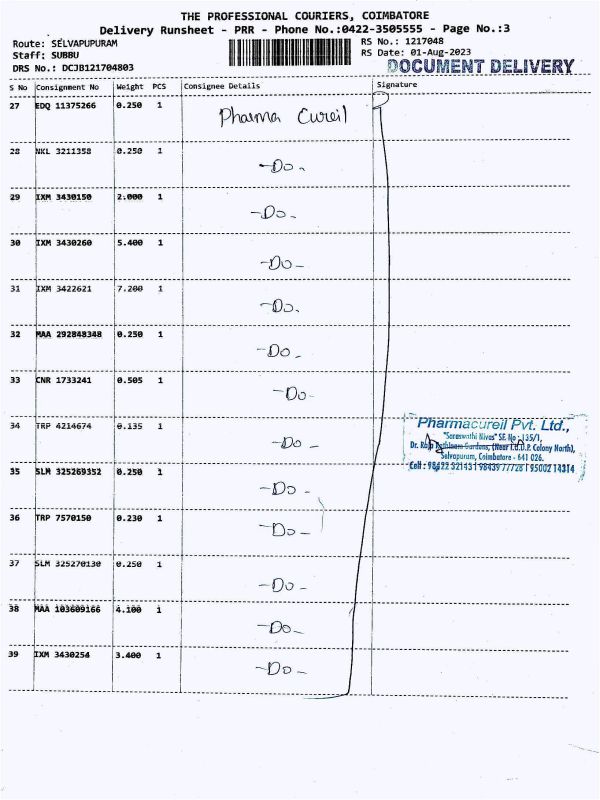 THE PROFESSIONAL COURIERS, COIMBATORE
Delivery Runsheet - PRR - Phone No.:0422-3505555 - Page No.:3
Route: SELVAPUPURAM
RS No.: 1217048
Staff: SUBBU
RS Date: 01-Aug-2023
DRS No.: DCJB121704803
DOCUMENT DELIVERY
S No Consignment No Weight PCS Consignee Details Signature
27 EDQ 11375266 0.250 1 Pharma Cureil
28 NKL 3211358 0.250 1 -Do-
29 IXM 3430150 2.000 1 -Do-
30 IXM 3430260 5.400 1 -Do-
31 IXM 3422621 7.200 1 -Do.
32 MAA 292848348 0.250 1 -Do-
33 CNR 1733241 0.505 1 -Do-
34 TRP 4214674 0.135 1 -Do-
Pharmacureil Pvt. Ltd.,
"Saraswathi Nivas" SF. No : 135/1,
Dr. Raja Rathinam Gardens, (Near I.U.D.P. Colony North),
Selvapuram, Coimbatore - 641 026.
Cell : 98422 32143 | 98439 77728 | 95002 14314
35 SLM 325269352 0.250 1 -Do-
36 TRP 7570150 0.230 1 -Do-
37 SLM 325270130 0.250 1 -Do-
38 MAA 103609166 4.100 1 -Do-
39 IXM 3430254 3.400 1 -Do-